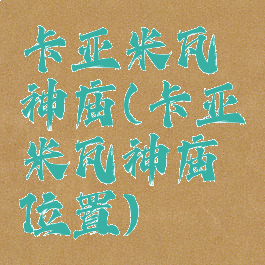 卡亚米瓦
神庙(卡亚
米瓦神庙
位置)